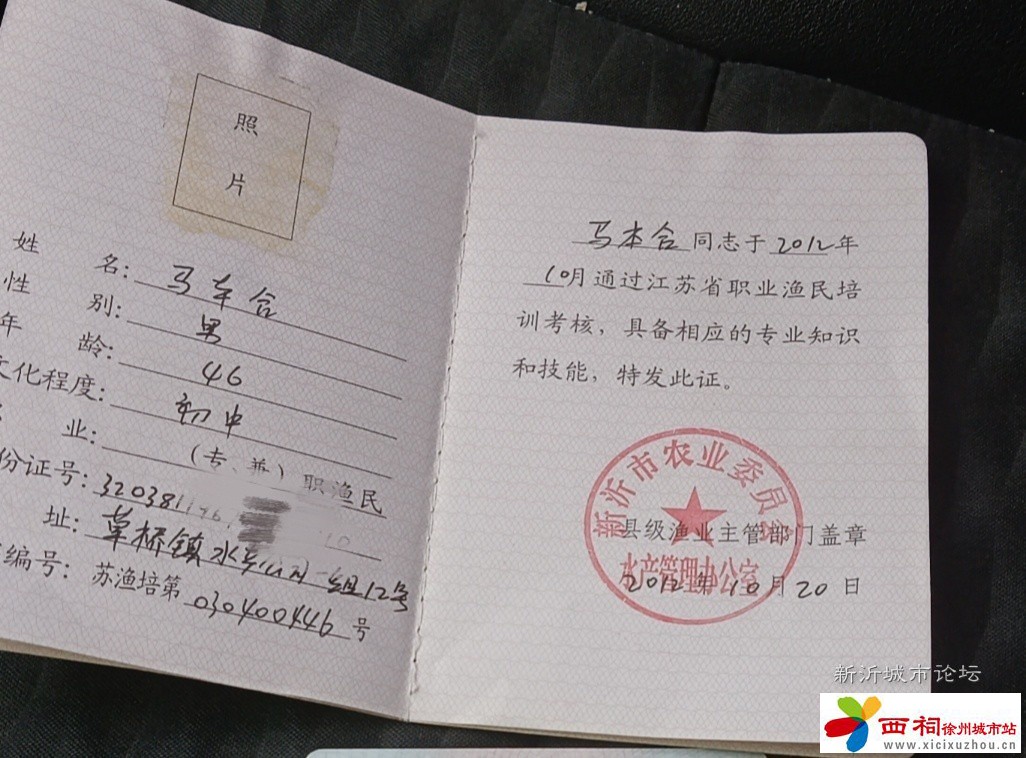 照
片
姓 名：马本合
性 别：男
年 龄：46
文化程度：初中
业：（专、兼）职渔民
份证号：320381
址：草桥镇水 组12号
编号：苏渔培第030400446号
马本合同志于2012年
10月通过江苏省职业渔民培
训考核，具备相应的专业知识
和技能，特发此证。
新沂市农业委员会
县级渔业主管部门盖章
水产管理办公室
2012年10月20日
新沂城市论坛
西祠徐州城市站
www.xicixuzhou.cn